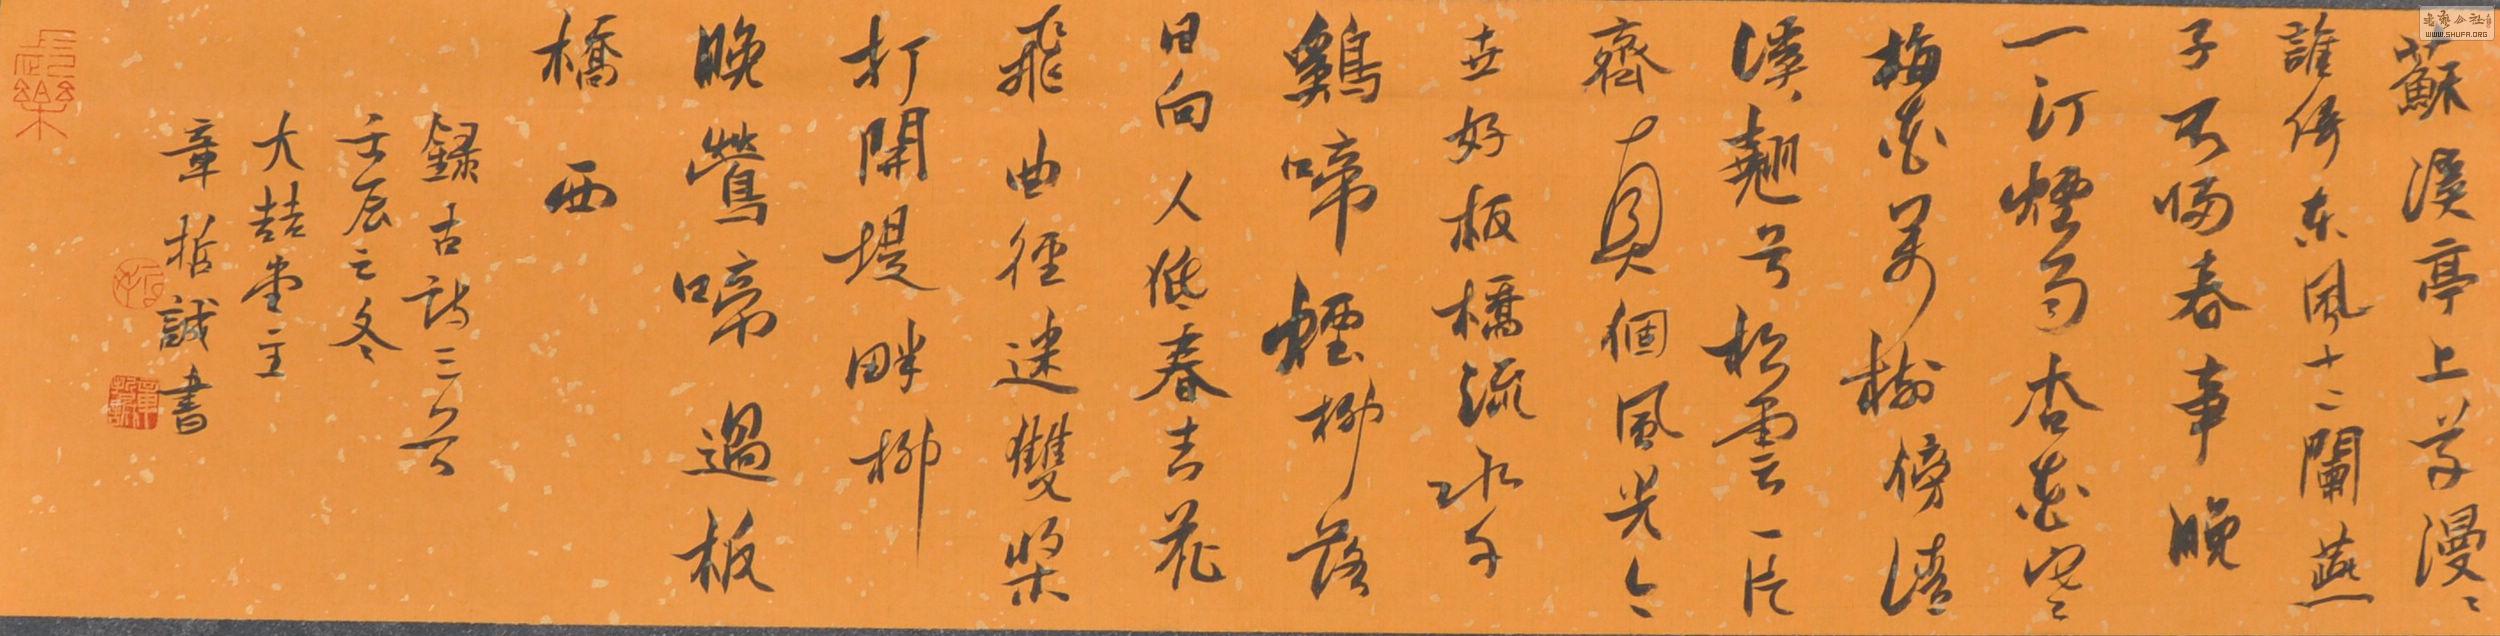 蘇溪亭上草漫〻
誰倚東風十二闌燕
子不歸春事晚
一汀煙雨杏花寒
梅花萬樹傍清
溪翹首松雲一片
齊真個風光今
世好板橋流水午
鷄啼煙柳落
日向人低春去花
飛曲徑迷雙槳
打開堤畔柳
晚鶯啼過板
橋西
錄古詩三首
壬辰之冬
大喆堂主
章哲誠書
長樂
WWW.SHUFA.ORG